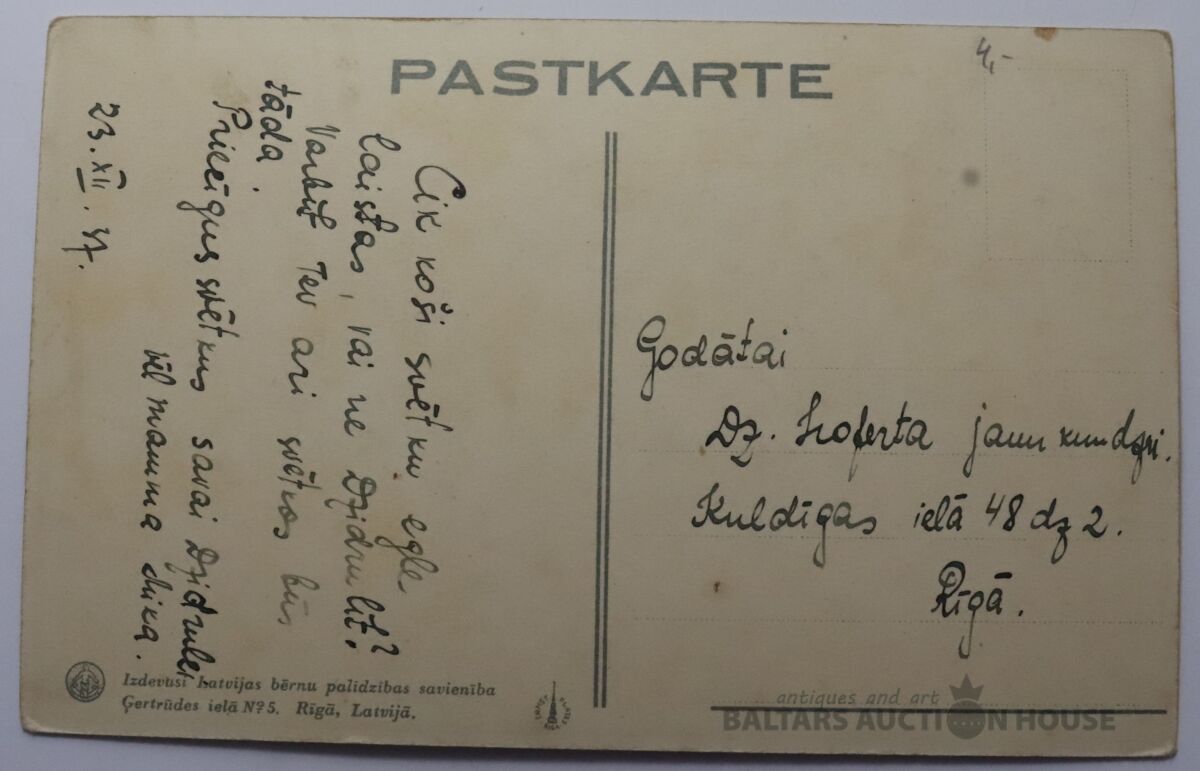 PASTKARTE
4,-
Cik koši svētku egle
laistas, vai ne Dzidrulīt?
Varbūt Tev ari svētkos būs
tāda.
Priecīgus svētkus savai Dzidrulei
vēl mamma
23. XII. 37.
Godātai
Dz. jaunkundzei.
Kuldīgas ielā 48 dz 2.
Rīgā.
Izdevusi Latvijas bērnu palidzības savienība
Ģertrūdes ielā № 5. Rīgā, Latvijā.
antiques and art
BALTARS AUCTION HOUSE